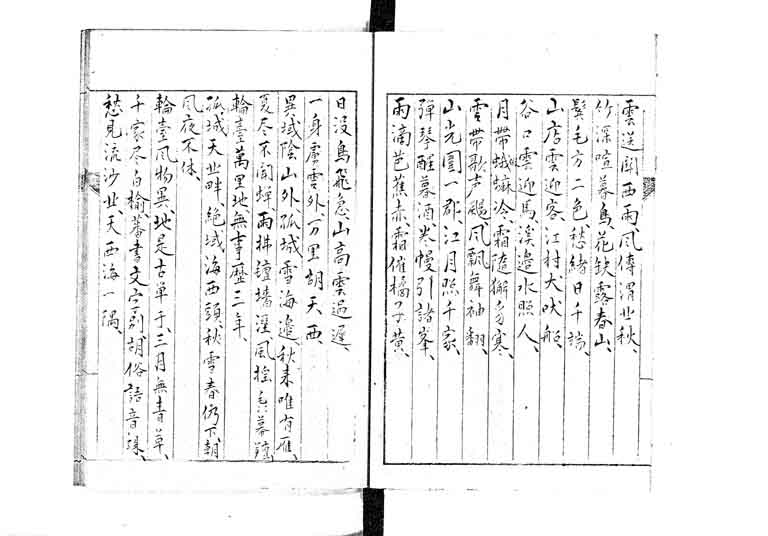 雲送関西雨、風傳渭北秋、
竹深喧暮鳥、花缺露春山、
鬢毛方二色、愁緒日千端、
山店雲迎客、江村犬吠船、
谷口雲迎馬、溪邊水照人、
月帶蛾嵋冷、霜隨獬豸寒、
雪帶歌声颺、風飄舞袖翻、
山光圍一郡、江月照千家、
彈琴醒暮酒、卷幔引諸峯、
雨滴芭蕉赤、霜催橘子黄、
日没鳥飛急、山高雲過遲、
一身虜雲外、万里胡天西、
異域陰山外、孤城雪海邊、秋来唯有雁、
夏尽不聞蝉、雨拂氊墻湿、風揺毳幕羶、
輪臺萬里地、無事歴三年、
孤城天北畔、絶域海西頭、秋雪春仍下、朝
風夜不休、
輪臺風物異、地是古単于、三月無青草、
千家尽白榆、蕃書文字別、胡俗語音殊、
愁見流沙北、天西海一隅、